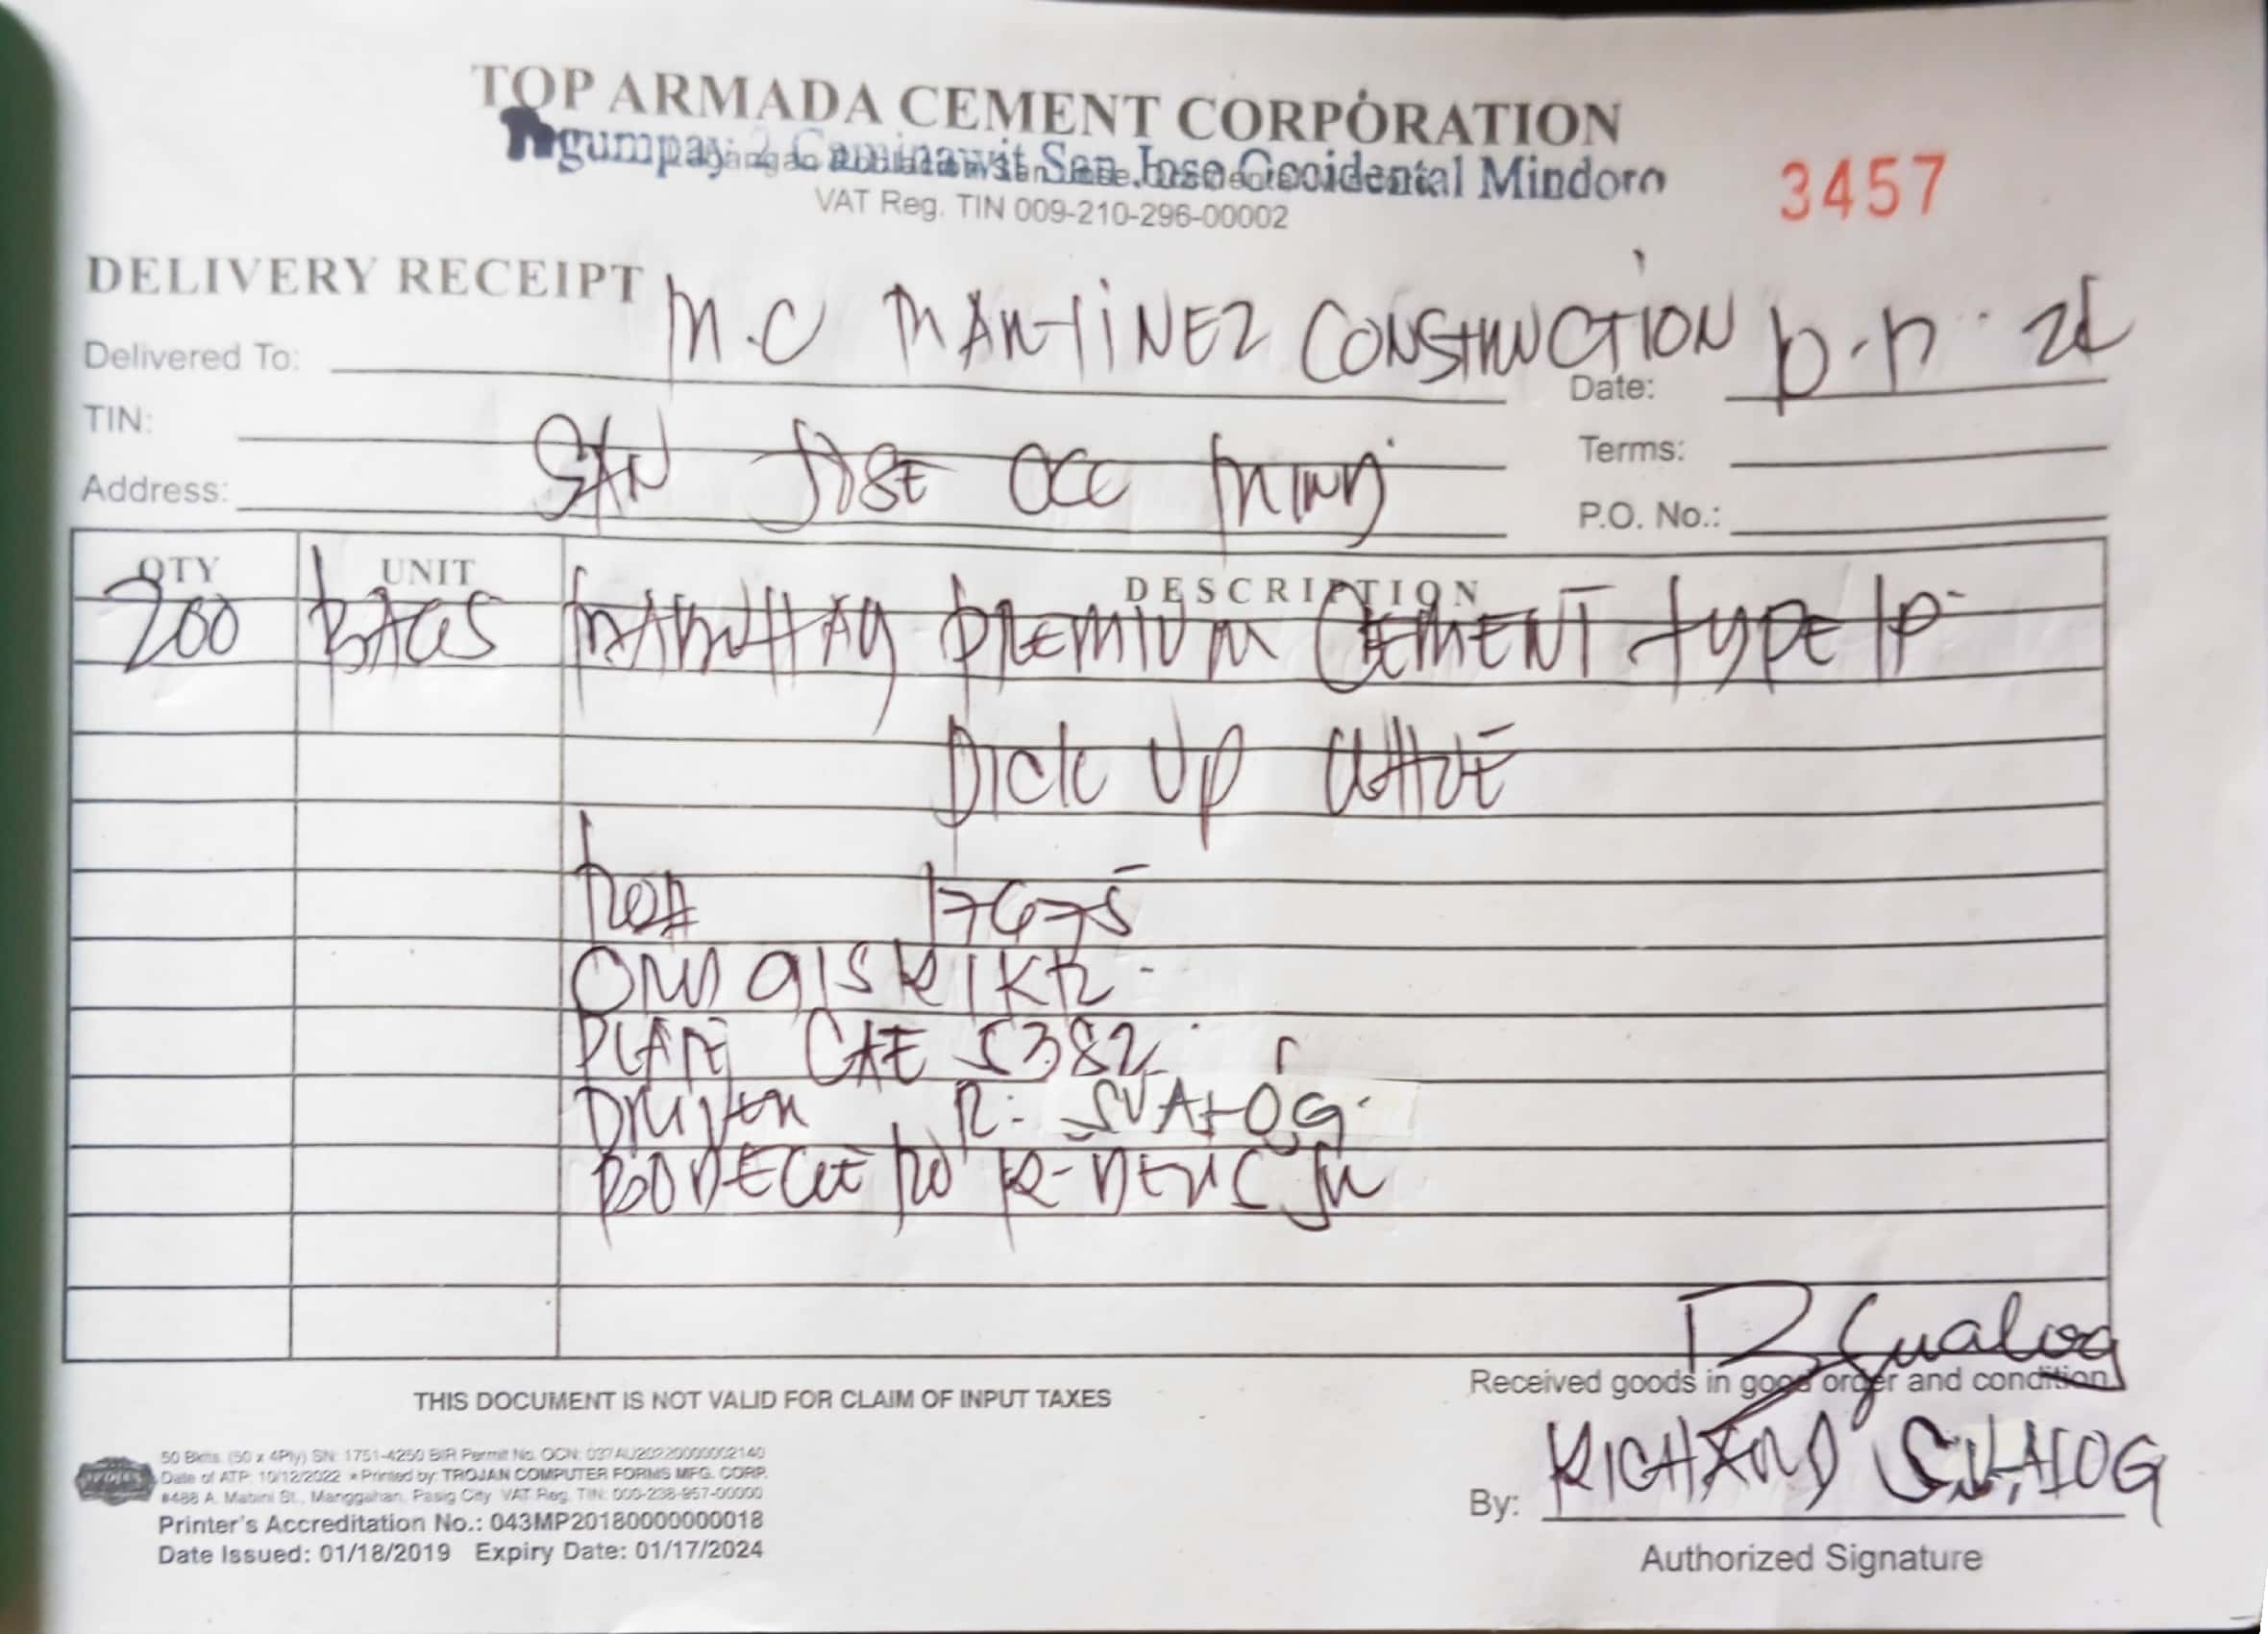 TOP ARMADA CEMENT CORPORATION
Pagumpay 2 Caminawit San Jose Occidental Mindoro
VAT Reg. TIN 009-210-296-00002
3457
DELIVERY RECEIPT
Delivered To: M.C MARTINEZ CONSTRUCTION
Date:
TIN:
Terms:
Address: SAN JOSE OCC MIND
P.O. No.:
QTY UNIT DESCRIPTION
200 BAGS PREMIUM CEMENT TYPE 1P
PICK UP
17675
PLATE CAE 5382
DRIVER R. SUALOG
BODEGERO R- JR
R Sualog
Received goods in good order and condition
THIS DOCUMENT IS NOT VALID FOR CLAIM OF INPUT TAXES
By: RICHARD SUALOG
Authorized Signature
50 Bkts. (50 x 4Ply) SN: 1751-4250 BIR Permit No. OCN: 037AU20220000002140
Date of ATP: 10/12/2022 * Printed by: TROJAN COMPUTER FORMS MFG. CORP.
#488 A. Mabini St., Manggahan, Pasig City VAT Reg. TIN: 000-238-957-00000
Printer's Accreditation No.: 043MP20180000000018
Date Issued: 01/18/2019 Expiry Date: 01/17/2024